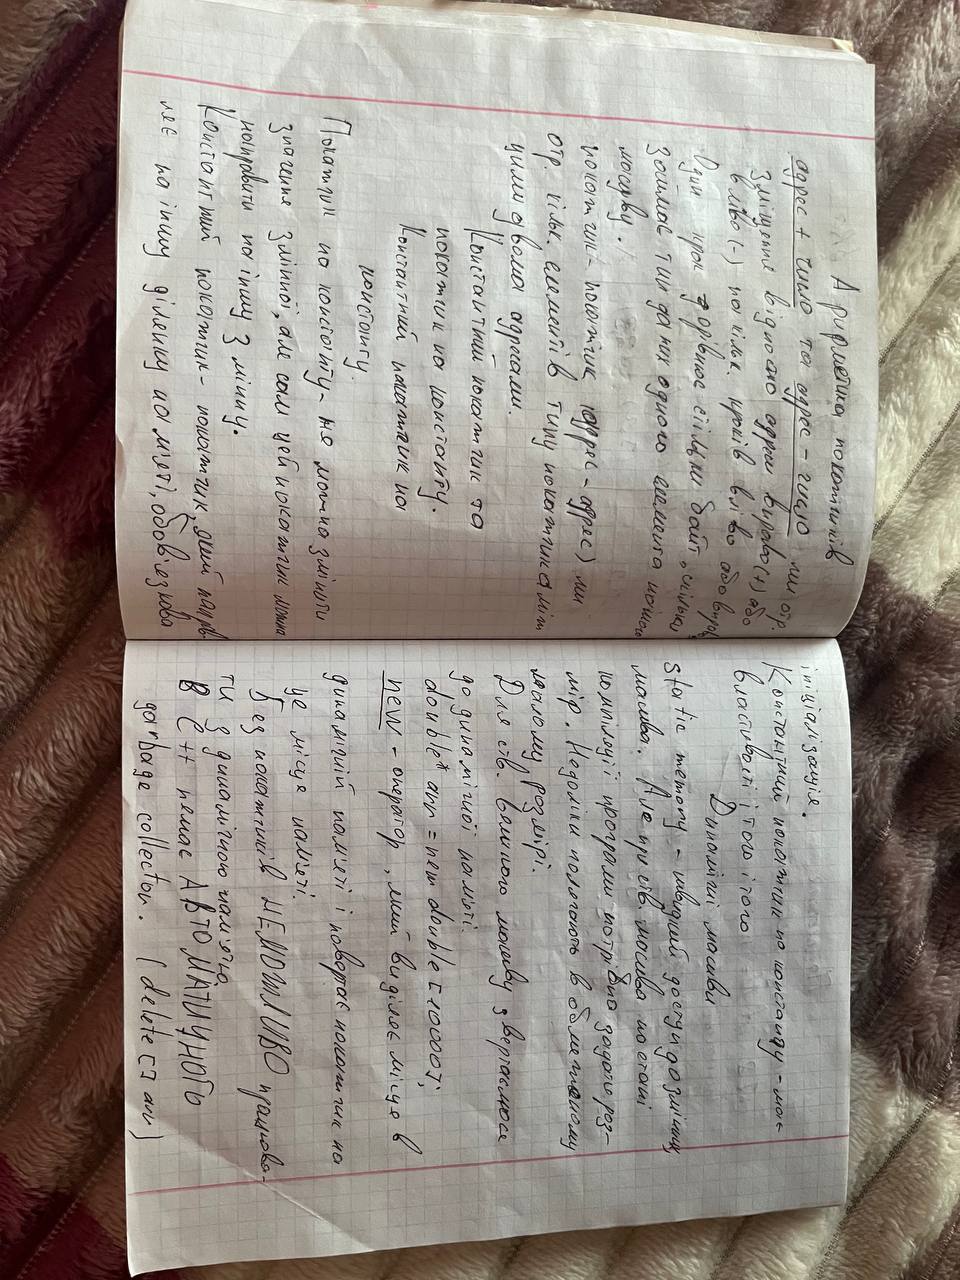 Арифметика покажчиків
адрес + число та адрес - число ми отр.
Зміщення відносно адреси вправо (+) або
вліво (-) на кільк. кроків вліво або вправ
Один крок дорівнює стільки байт, скільки
займає тип даних одного елемента нашого
масиву.
покатчик - покатчик (адрес - адрес) ми
отр. кільк елементів типу покатчика між
цими двома адресами.
Константний покатчик та
покатчик на константу.
Константний покатчик на
константу.
Покатчик на константу - не можна змінити
значення змінної, але сам цей покатчик можна
направити на іншу змінну.
Константний покатчик - покатчик, який направ
ляє на іншу ділянку памяті, обов'язкова
ініціалізація.
Константний покатчик на константу - має
властивості і того і того
Динамічні масиви
Static memory - швидкий доступ до змінних
масива. Але при ств масива на етапі
компіляції програми потрібно задати роз-
мір. Недоліки полягають в обмеженому
малому розмірі.
Для ств. великого масиву звертаємося
до динамічної памяті.
double* arr = new double [10000];
new - оператор, який виділяє місце в
динамічній памяті і повертає покатчик на
це місце памяті.
Без покатчиків НЕМОЖЛИВО працюва-
ти з динамічною пам'яттю
В C++ немає АВТОМАТИЧНОГО
garbage collector. (delete[] arr)